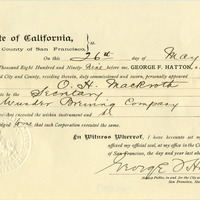 te of California,
County of San Francisco,
on this 26th day of May
Thousand Eight Hundred and Ninety Nine before me, GEORGE F. HATTON, a
City and County, residing therein, duly commissioned and sworn, personally appeared
O. H. Mackroth
Secretary
Wunder Brewing Company
executed the within instrument and
me that such Corporation executed the same.
In Witness Whereof, I have hereunto set my
affixed my official seal, at my office in the C
of San Francisco, the day and year last abo
George F. H
Notary Public, in and for the City
San Francisco,